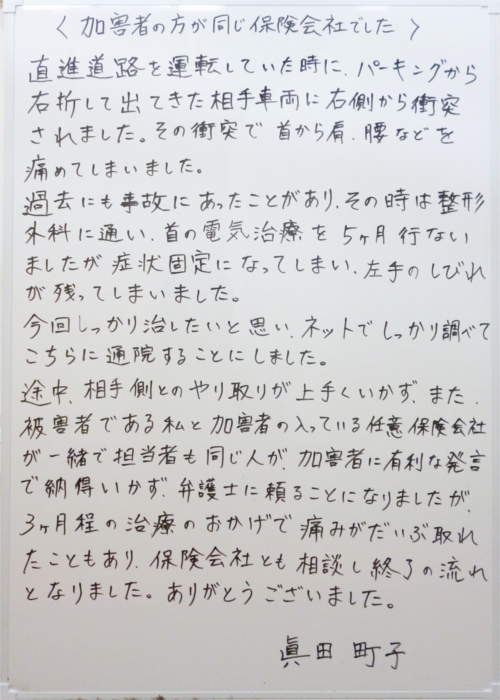 〈 加害者の方が同じ保険会社でした 〉
直進道路を運転していた時に、パーキングから
右折して出てきた相手車両に右側から衝突
されました。その衝突で首から肩、腰などを
痛めてしまいました。
過去にも事故にあったことがあり、その時は整形
外科に通い、首の電気治療を5ヶ月行ない
ましたが症状固定になってしまい、左手のしびれ
が残ってしまいました。
今回しっかり治したいと思い、ネットでしっかり調べて
こちらに通院することにしました。
途中、相手側とのやり取りが上手くいかず、また
被害者である私と加害者の入っている任意保険会社
が一緒で担当者も同じ人が、加害者に有利な発言
で納得いかず、弁護士に頼ることになりましたが、
3ヶ月程の治療のおかげで痛みがだいぶ取れ
たこともあり、保険会社とも相談し終了の流れ
となりました。ありがとうございました。
眞田 町子